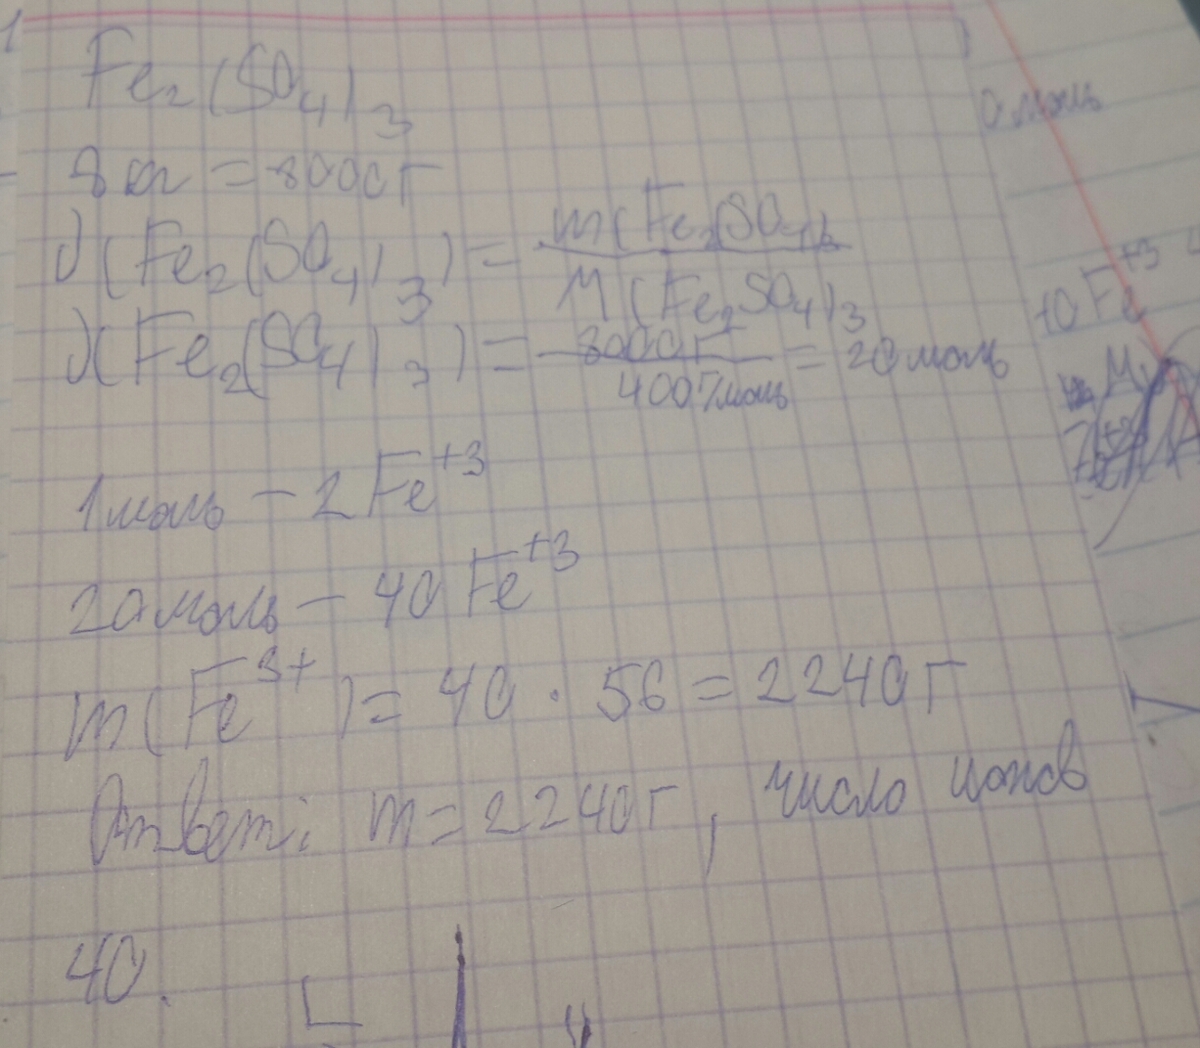 1
Fe₂(SO₄)₃
8 кг = 8000 г
ν(Fe₂(SO₄)₃) = m(Fe₂(SO₄)₃ / M(Fe₂SO₄)₃
ν(Fe₂(SO₄)₃) = 8000 г / 400 г/моль = 20 моль
1 моль – 2 Fe⁺³
20 моль – 40 Fe⁺³
m(Fe³⁺) = 40 · 56 = 2240 г
Ответ: m = 2240 г, число ионов
40.
0 моль
40 Fe⁺³